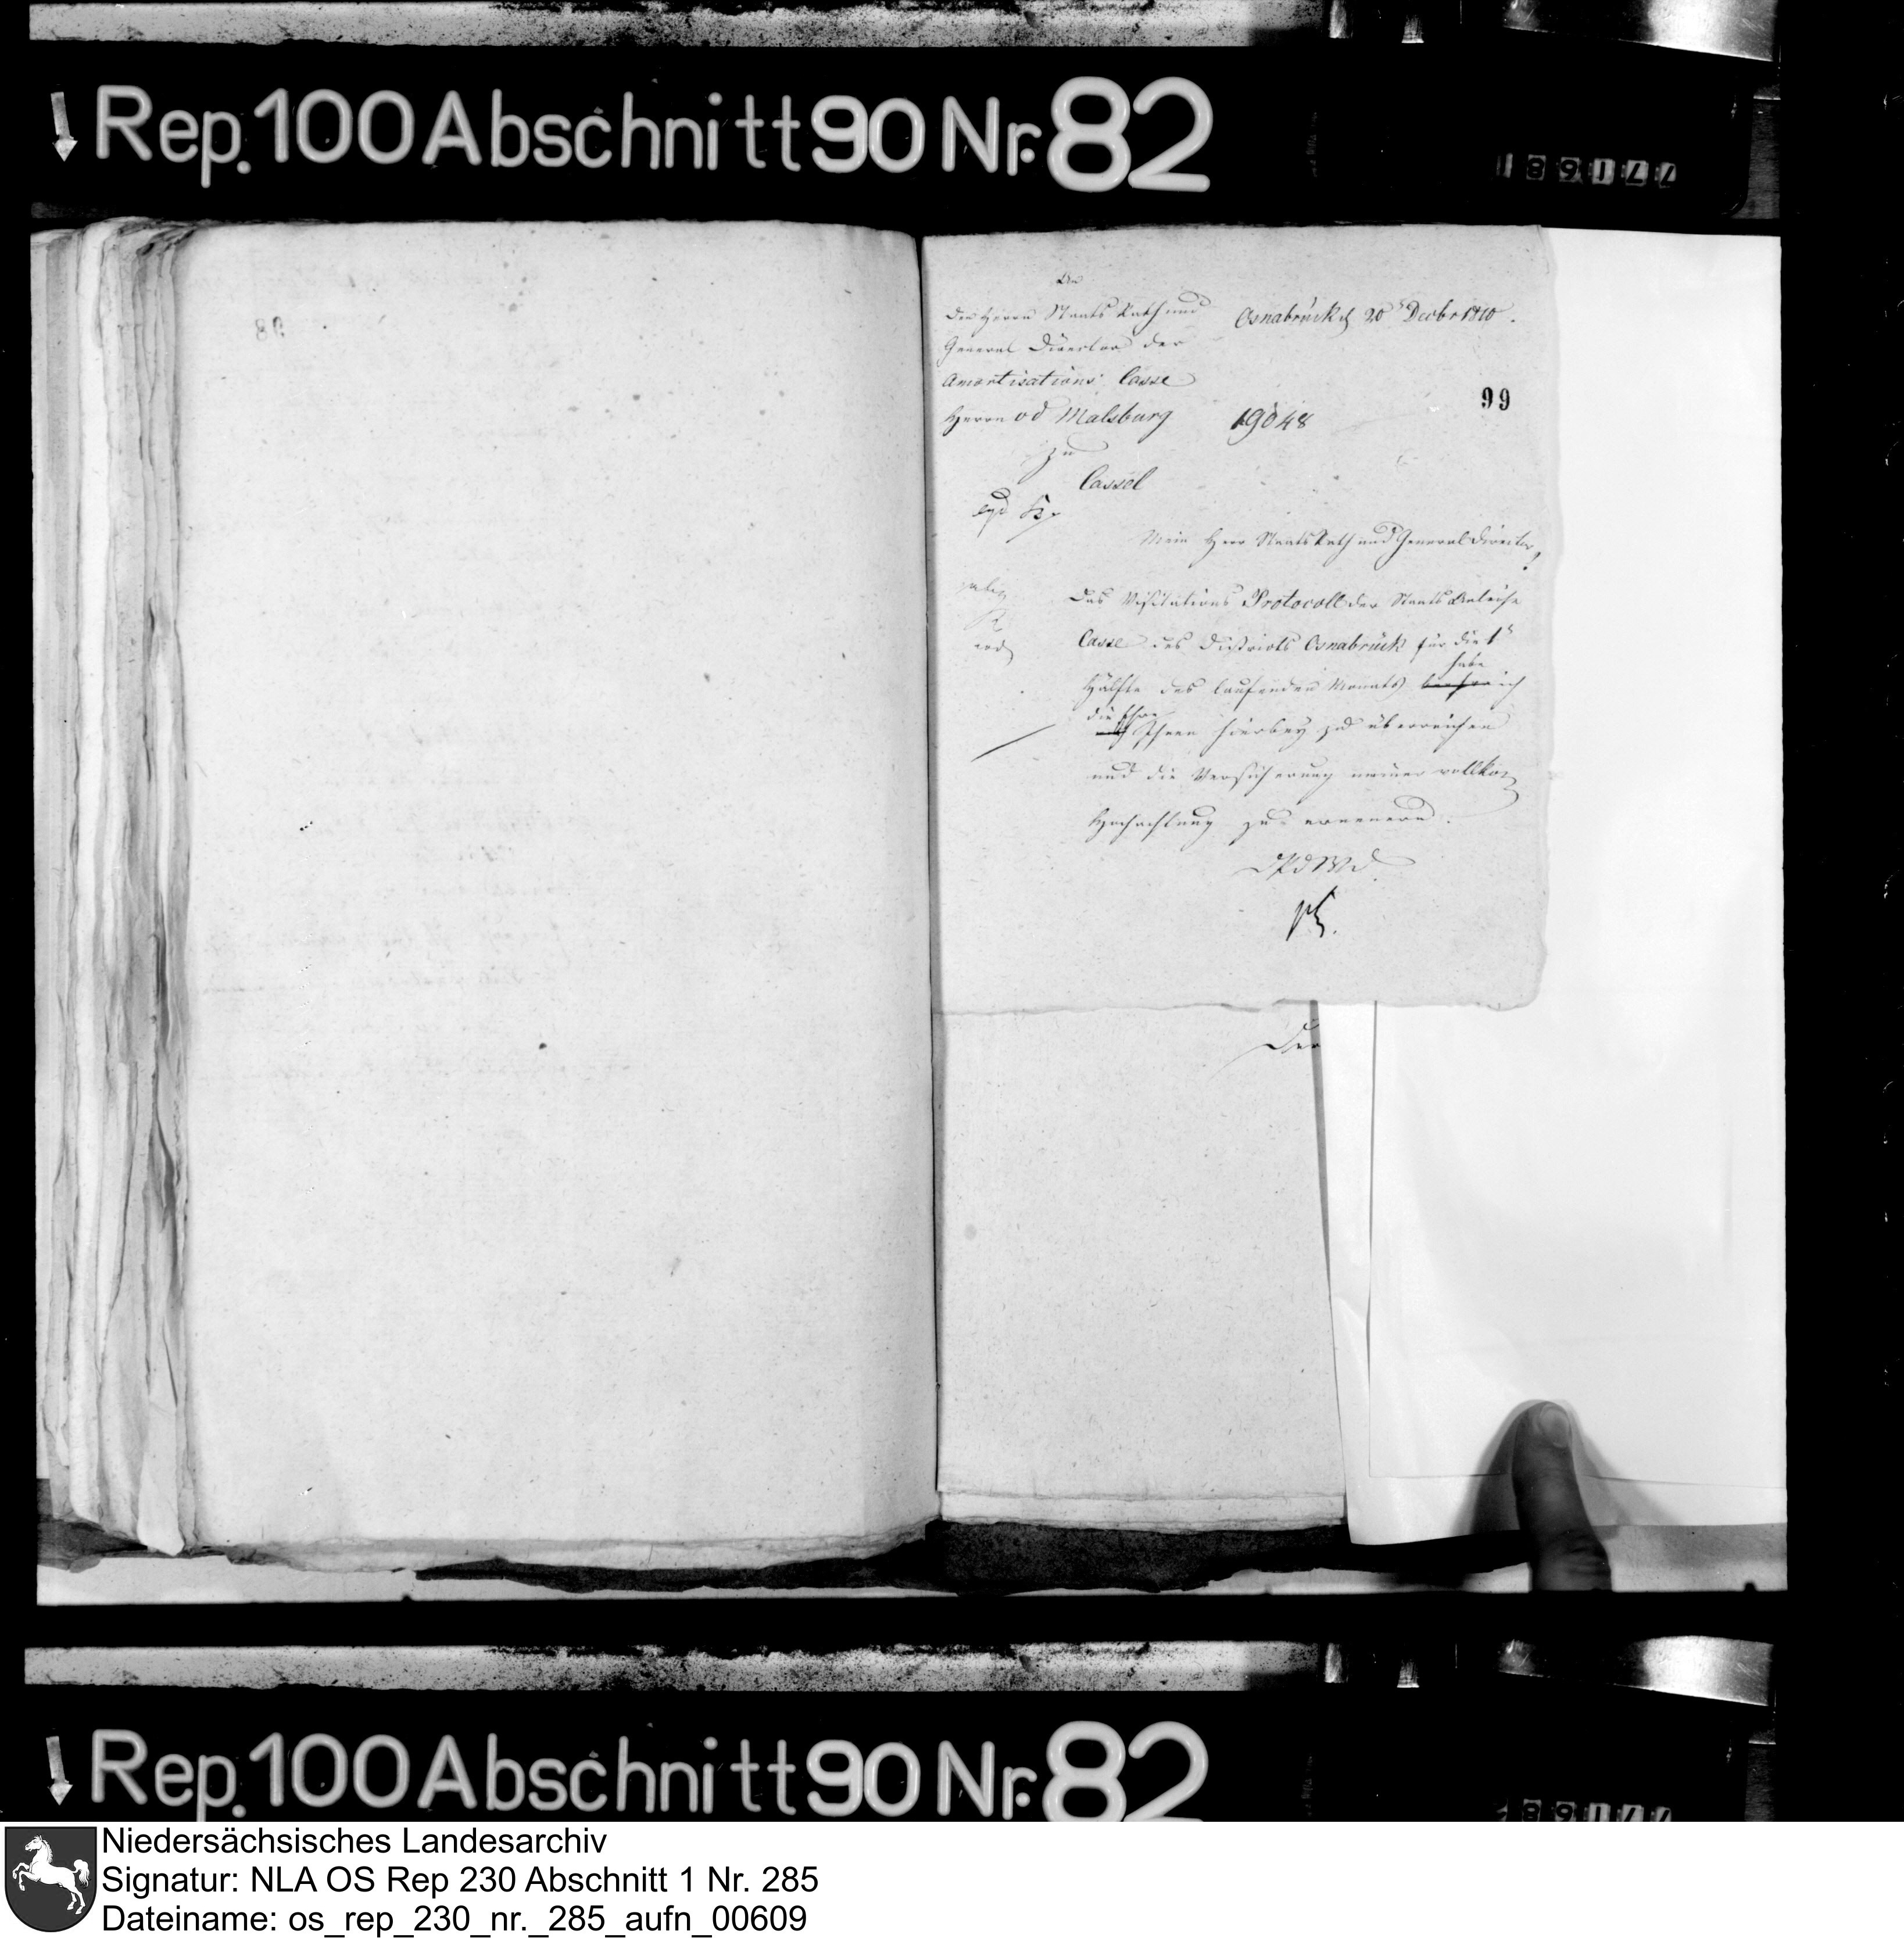 Rep. 100 Abschnitt 90 Nr. 82
189177
An
den Herrn Staats Rath und
General Director der
Amortisations Casse
Herrn v d Malsburg
zu
Cassel
Osnabrück d 20 Decbr 1810.
99
19048
Mein Herr Staats Rath und General Director,
Das Visitations Protocoll der Staats Anleihe
Casse des Districts Osnabrück für die 1
habe
Hälfte des laufenden Monats beehre ich
die Ehre
mich Ihnen hierbey zu überreichen
und die Versicherung meiner vollkom
Hochachtung zu erneuern.
Der
98
Rep. 100 Abschnitt 90 Nr. 82
Niedersächsisches Landesarchiv
Signatur: NLA OS Rep 230 Abschnitt 1 Nr. 285
Dateiname: os_rep_230_nr._285_aufn_00609